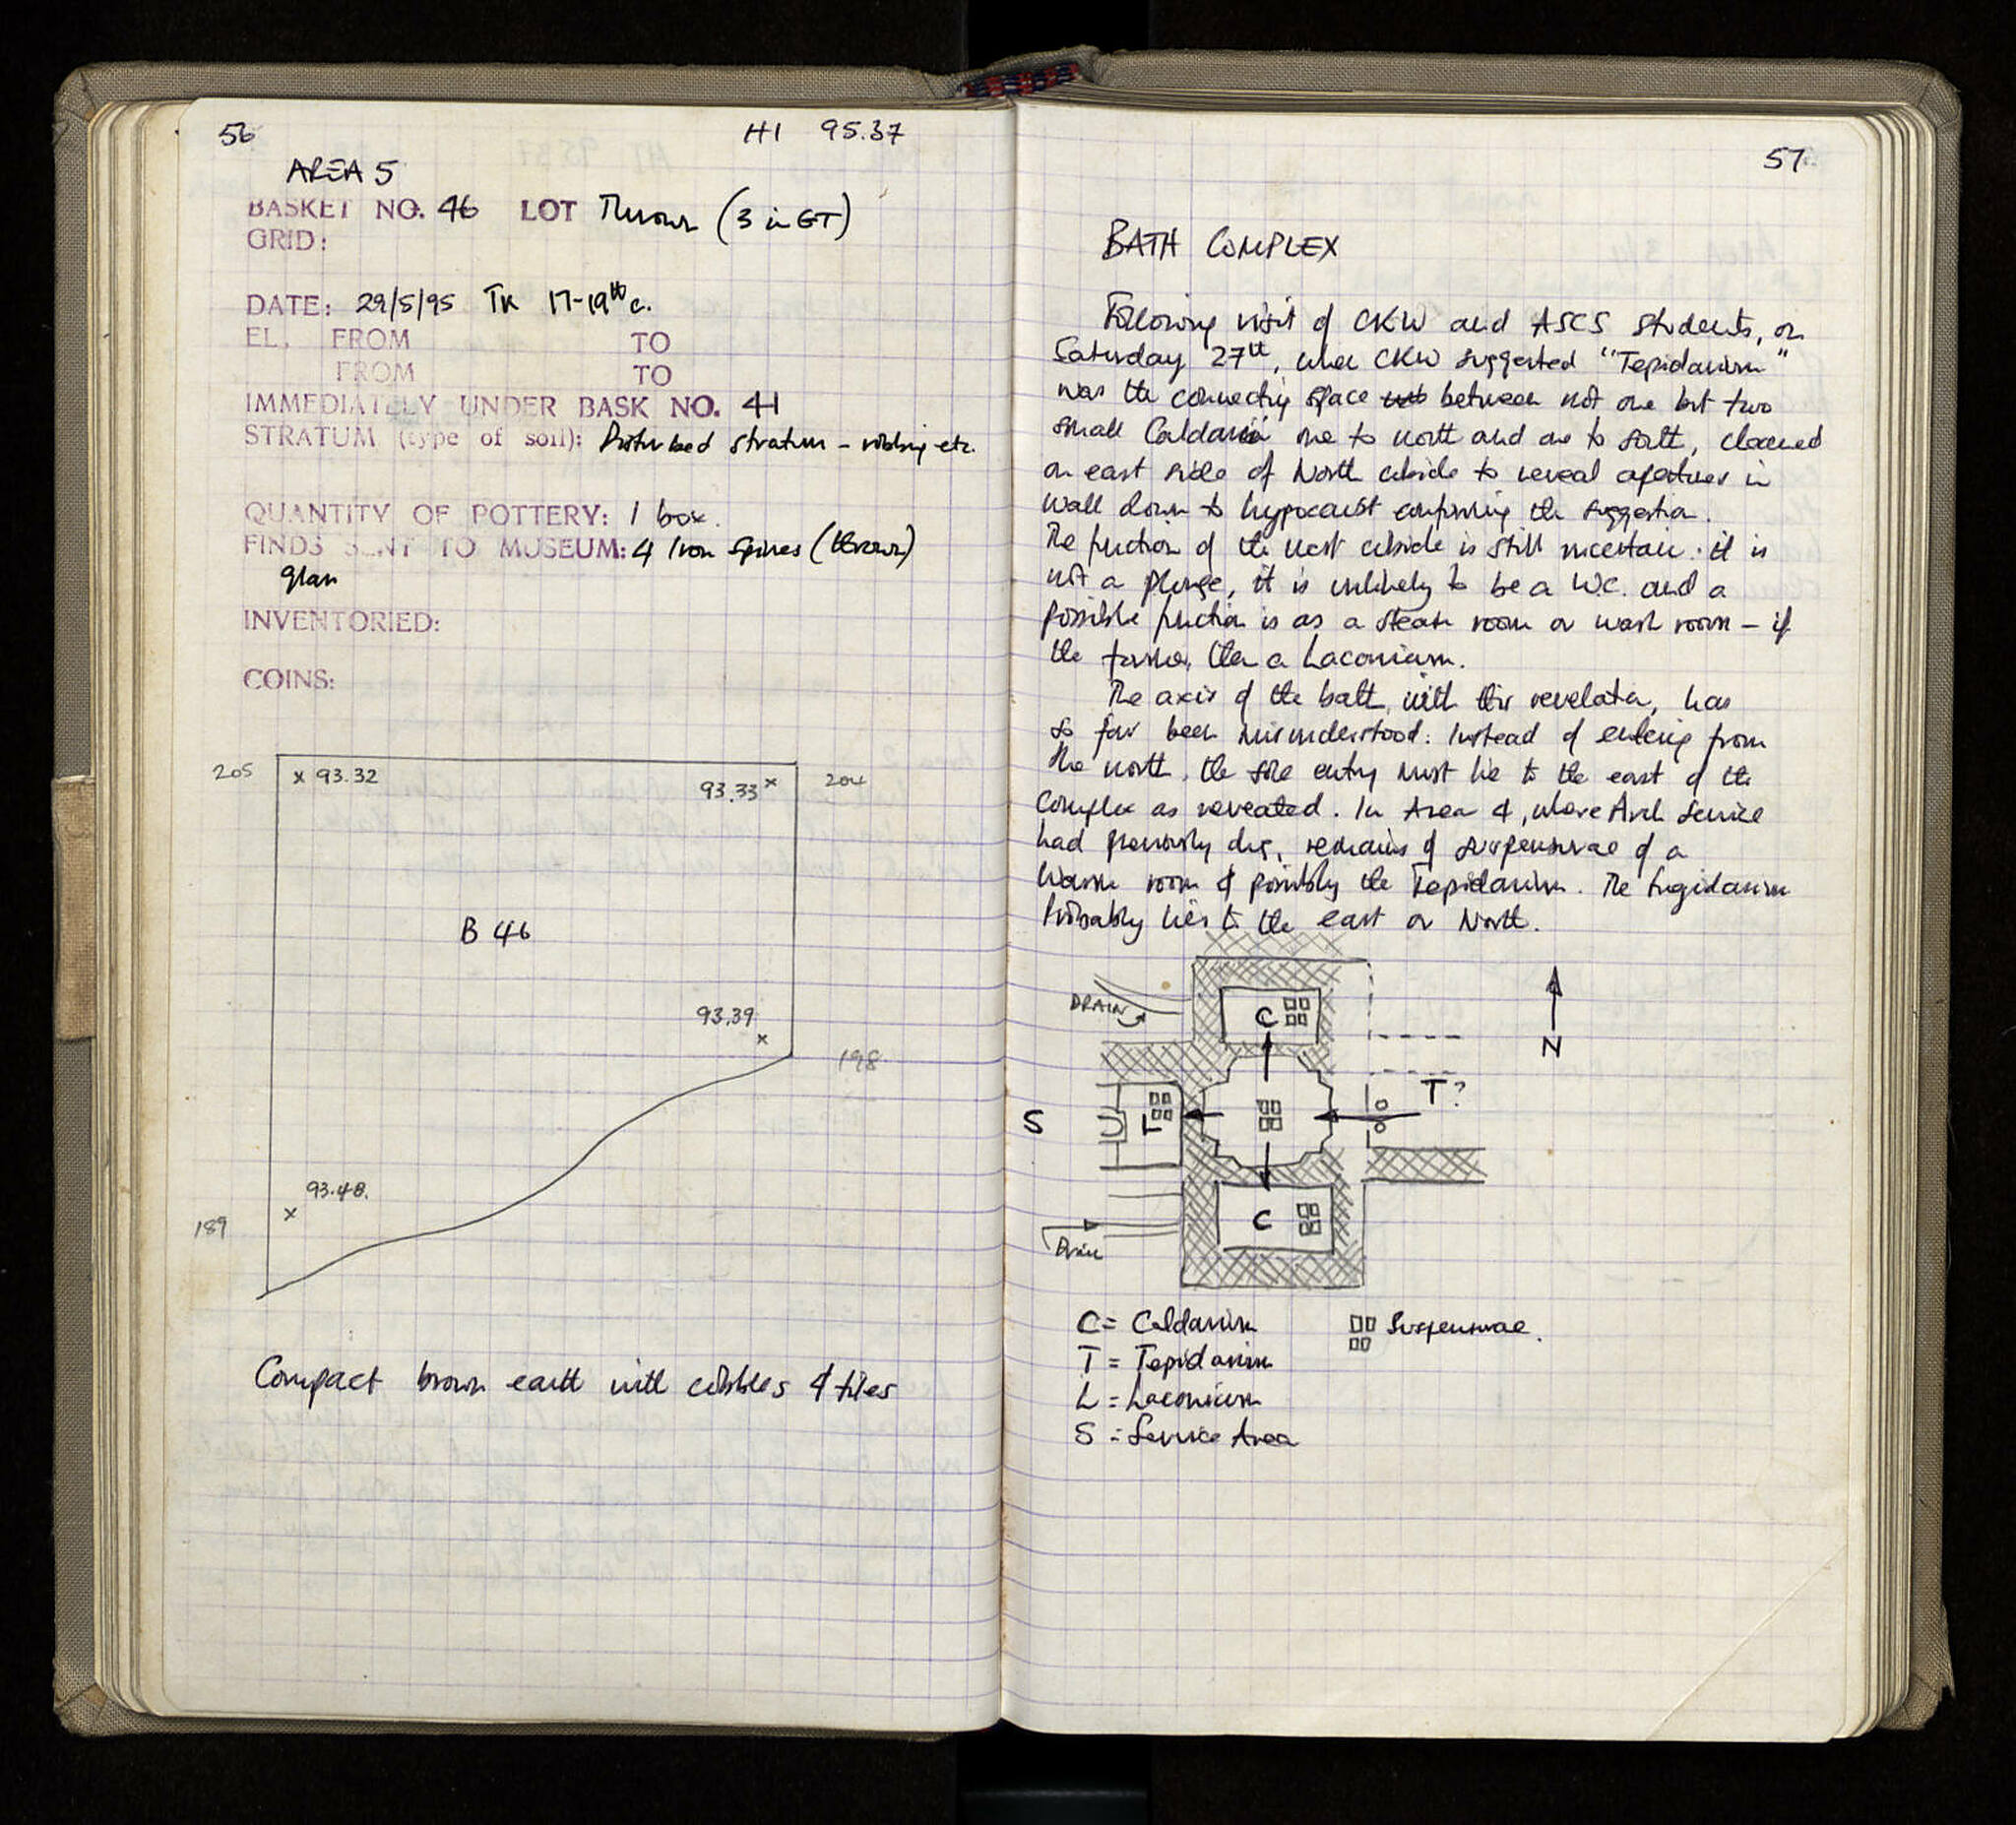 56
HI 95.37
AREA 5
BASKET NO. 46 LOT Thrown (3 in GT)
GRID:
DATE: 29/5/95 TK 17-19th c.
EL. FROM TO
FROM TO
IMMEDIATELY UNDER BASK NO. 41
STRATUM (type of soil): Disturbed stratum - robbing etc.
QUANTITY OF POTTERY: 1 box.
FINDS SENT TO MUSEUM: 4 Iron Spikes (thrown)
glass
INVENTORIED:
COINS:
205
x 93.32
93.33 x
204
B 46
93.39
x
198
93.48.
x
189
Compact brown earth with cobbles & tiles
57
BATH COMPLEX
Following visit of CKW and ASCS students, on
Saturday 27th, when CKW suggested "Tepidarium"
was the connecting space between not one but two
small Caldaria one to north and one to south, cleaned
on east side of North abside to reveal apertures in
wall down to hypocaust confirming the suggestion.
The function of the west abside is still uncertain. it is
not a plunge, it is unlikely to be a W.C. and a
possible function is as a steam room or wash room - if
the former, then a Laconium.
The axis of the bath, with this revelation, has
so far been misunderstood. Instead of entering from
the north, the sole entry must lie to the east of the
complex as revealed. In Area 4, where Arch Service
had previously dug, remains of suspensurae of a
warm room & possibly the Tepidarium. The frigidarium
probably lies to the east or North.
DRAIN
C
N
T?
S
L
C
Drain
C = Caldarium
Suspensurae.
T = Tepidarium
L = Laconicum
S = Service Area